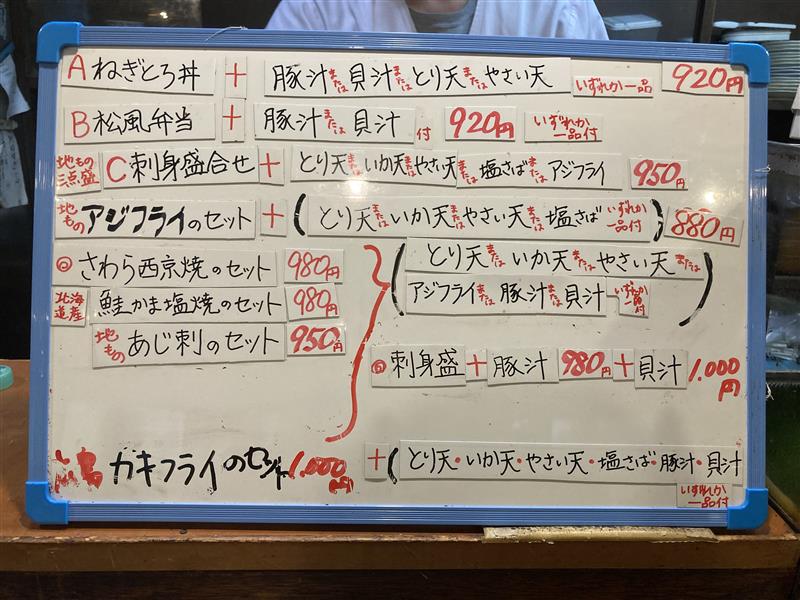 Aねぎとろ丼 + 豚汁または貝汁またはとり天またはやさい天 いずれか一品 920円
B松風弁当 + 豚汁または貝汁 付 920円 いずれか一品付
地もの三点盛 C刺身盛合せ + とり天またはいか天またはやさい天または塩さばまたはアジフライ 950円
地もの アジフライのセット + (とり天またはいか天またはやさい天または塩さば いずれか一品付) 880円
さわら西京焼のセット 980円
北海道産 鮭かま塩焼のセット 980円
地もの あじ刺のセット 950円
(とり天またはいか天またはやさい天または
アジフライまたは豚汁または貝汁 いずれか一品付)
刺身盛+豚汁 980円+貝汁 1.000円
カキフライのセット 1.000円 +(とり天・いか天・やさい天・塩さば・豚汁・貝汁
いずれか一品付